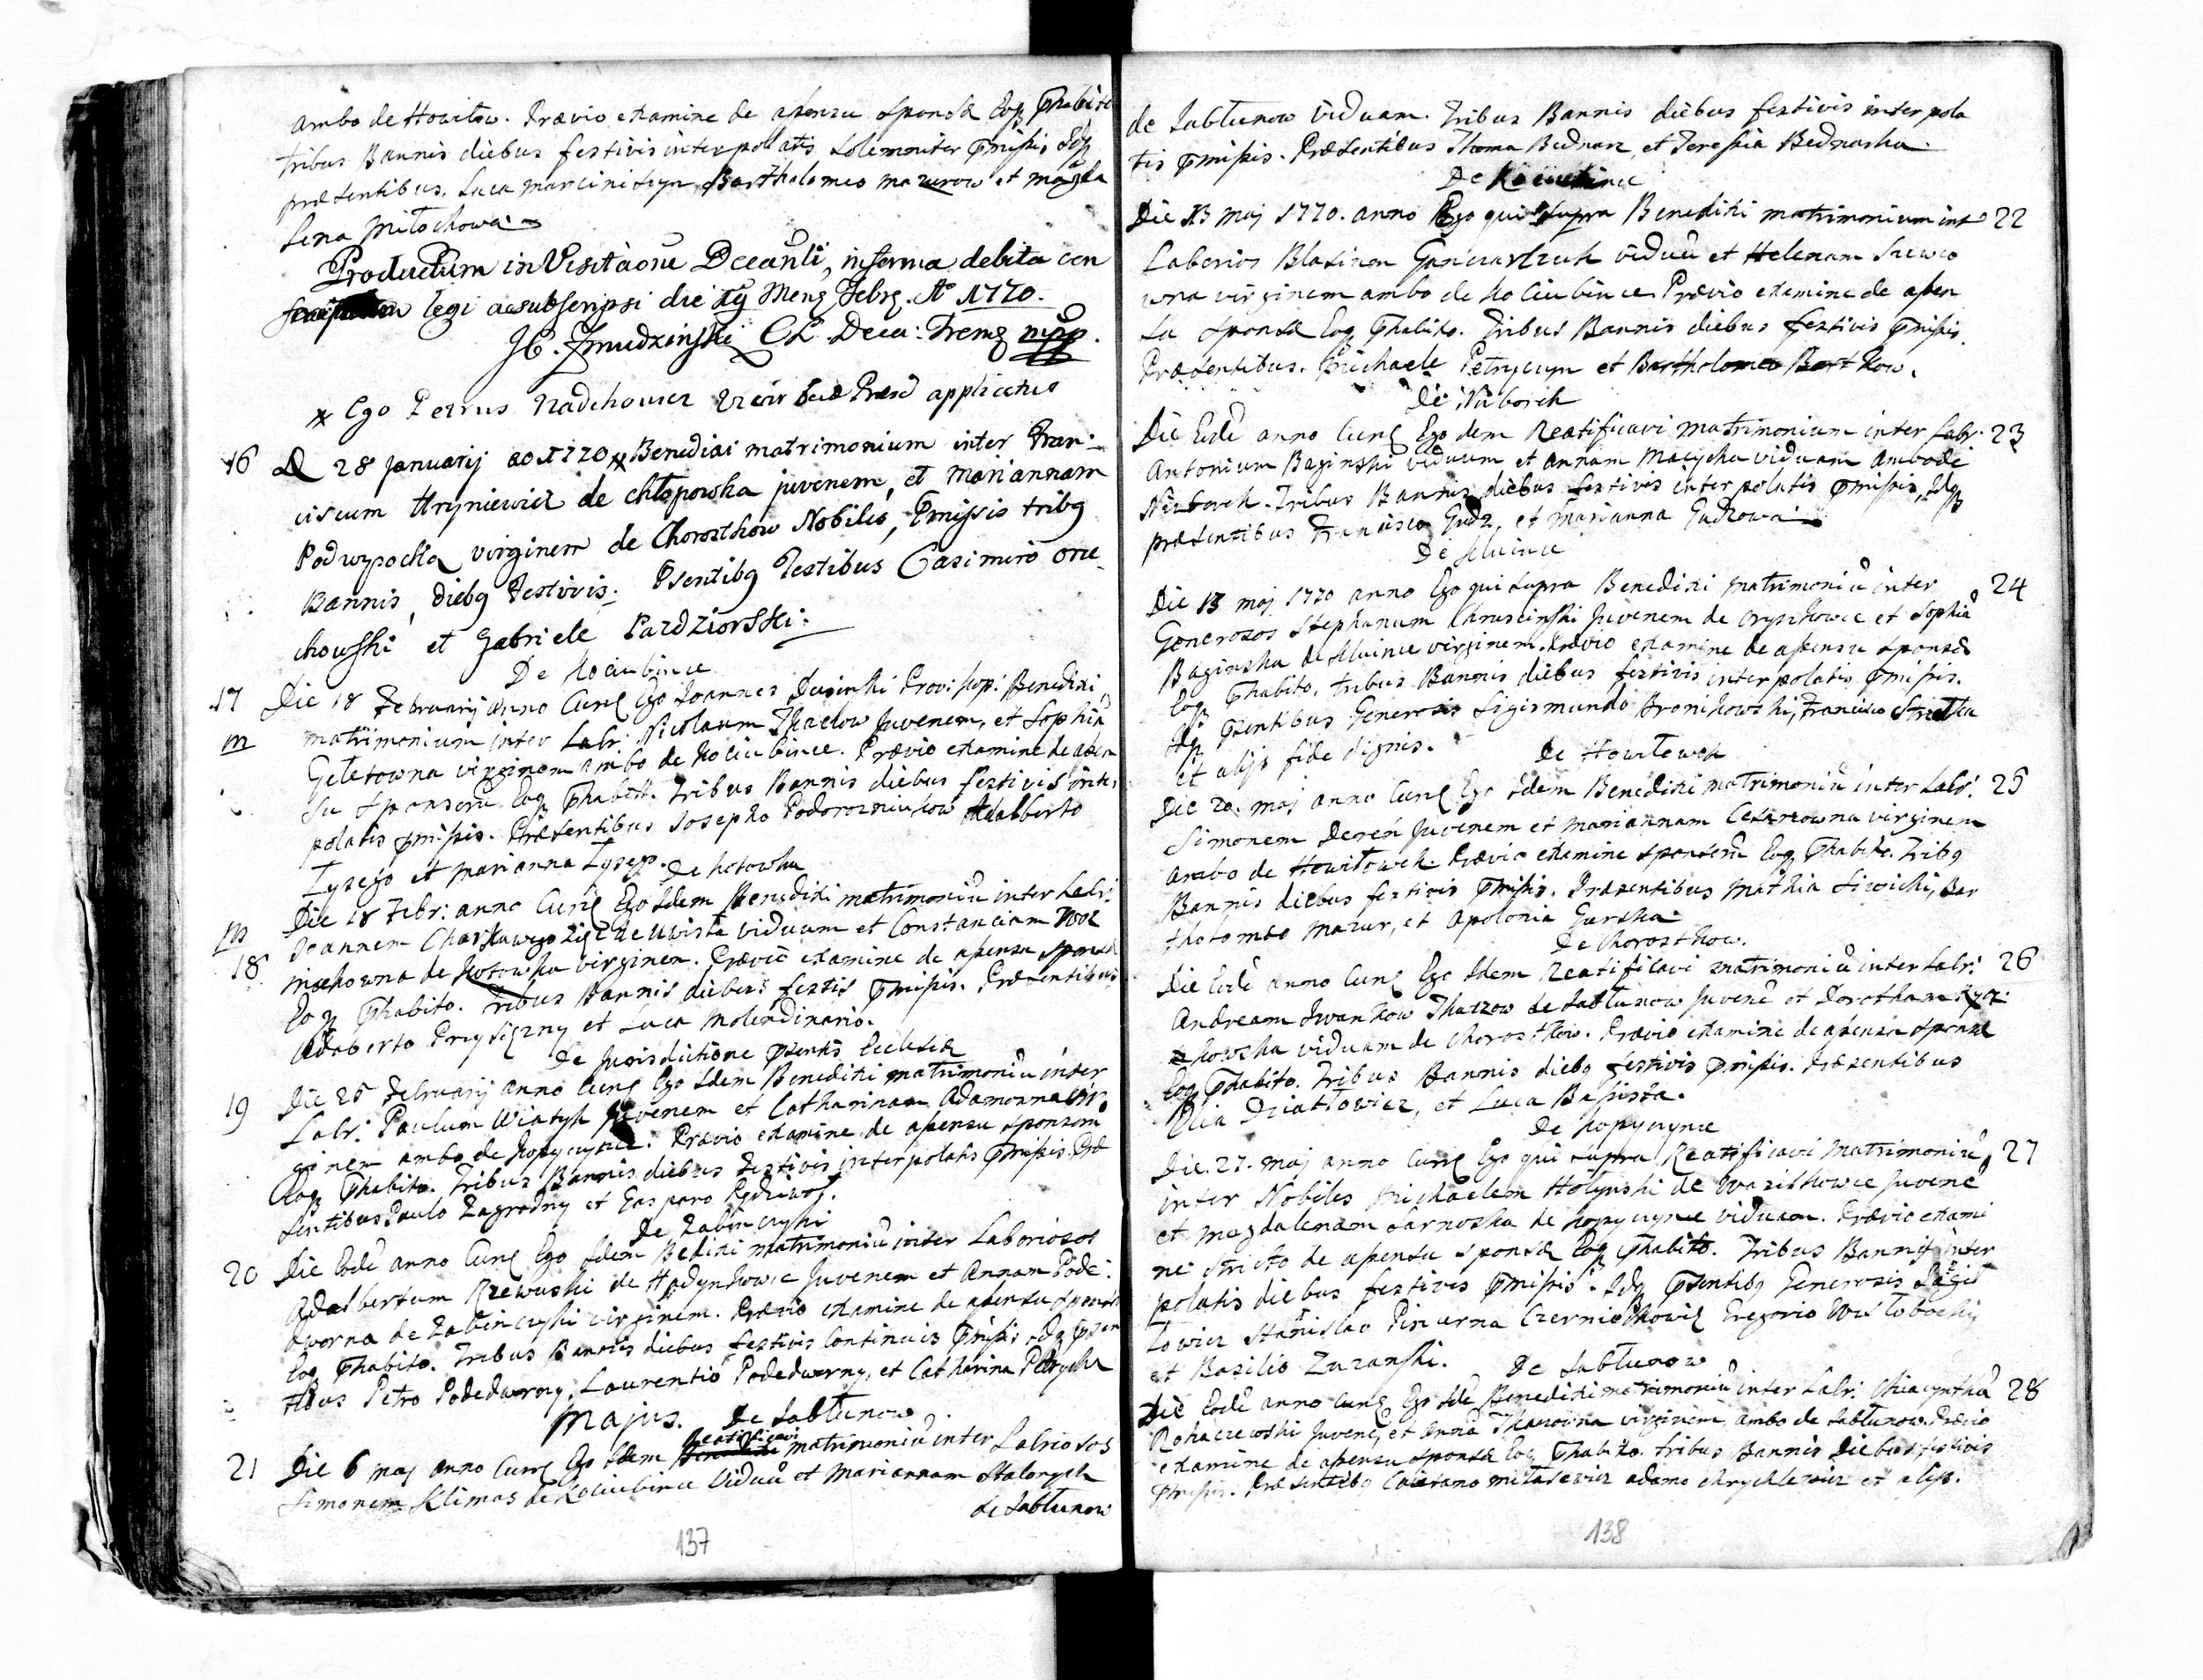 ambo de Howiłow. Prævio examine de asensu sponsæ Eoq; Phabito
tribus Bannis diebus festivis interpolatis solemniter Pmissis Idq;
præsentibus. Luca marciniszyn, Bartholomeo mazurow et magda
lena Miłochowa
Productum in Visitaõne Decanli, in forma debita con
legi ac subscripsi die Meng Febrg. Aº 1770.
Żmudzinski Deca: Tremg mpp.
* Ego Petrus applicatus
16 D 28 Januarij ao 1770 * Benedixi matrimonium inter Fran-
ciscum Hryniewicz de chłopowka juvenem, et mariannam
Podwysocka virginem de Chorostkow Nobiles, Pmissis tribg
Bannis, diebg Festivis. Psentibg Testibus Casimiro orze
chowski et Gabriele Pazdziorski.
De Kociubince
17 Die 18 Februarij anno Curē Ego Joannes Benedixi
m matrimonium inter Labr: Nicolaum Tkaclow Juvenem, et Sophiã
Geletowna virginem ambo de Kociubince. Prævio examine de asen
su sponsorũ Eoq; Phabito. Tribus Bannis diebus festivis inter
polatis Pmissis. Præsentibus Josepho Podorozniukow Adalberto
Łysego et marianna Łysego.
De Kotowka
m Die 18 Febr: anno Curē Ego Idem Benedixi matrimoniũ inter Labr:
18 Joannem de Uwista viduum et Constanciam Woz
niakowna de Kotowka virginem. Prævio examine de asensu sponsæ
Eoq; Phabito. Tribus Bannis diebus festis Pmissis. Præsentibus
Adaberto Przysiężny et Luca Molendinario.
De Jurisdictione Psentis Ecclesiæ
19 Die 25 Februarij anno Curē Ego Idem Benedixi matrimoniũ inter
Labr: Paulum Wiatyk Juvenem et Catharinam Adamowna vir
ginem ambo de Kopyczynce. Prævio examine de asensu sponsorũ
Eoq; Phabito. Tribus Bannis diebus Festivis interpolatis Pmissis. Præ
sentibus Paulo Zagrodny et Gasparo
De Zabinczyki
20 Die Eodē anno Curē Ego Idem Bedixi matrimoniũ inter Laboriosos
Adalbertum Rzewuski de Hadynkowce Juvenem et Annam Pode-
dworna de Zabinczyki virginem. Prævio examine de asensu sponsæ
Eoq; Phabito. Tribus Bannis diebus festivis Continuis Pmissis Idq; Psen
tibus Petro Podedworny, Laurentio Podedworny, et Catharina Petrycka
Majus. De Jabłunow
21 Die 6 maj anno Curē Ego Idem Reatificavi matrimoniũ inter Labriosos
Simonem Klimas de Kociubince Viduũ et Mariannam
de Jabłunow
137
de Jabłunow viduam. Tribus Bannis diebus festivis interpola
tis Pmissis. Præsentibus Thoma Bednarz, et Teressia Bednarka.
De Kociubince
Die 13 maj 1770. anno Ego qui supra Benedixi matrimonium int 22
Laborios Blasium Ganczarczuk viduũ et Helenam Szewco
wna virginem ambo de Kociubince Prævio examine de asen
su sponsæ Eoq; Phabito. Tribus Bannis diebus festivis Pmissis.
Præsentibus. Michaele Petryczyn et Bartholomeo Bartkow.
De Niżborek
Die Eodē anno Curē Ego Idem Reatificavi matrimonium inter Labr: 23
Antonium Baginski viduum et annam Macycka viduam ambo de
Niżborek. Tribus Bannis diebus festivis interpolatis Pmissis, Idq;
præsentibus Francisco Gudz, et marianna Gudzowa
De Kluince
Die 13 maj 1770 anno Ego qui supra Benedixi matrimoniũ inter 24
Generosos Stephanum Chruscinski Juvenem de oryszkowce et Sophiã
Baginska de Kluince virginem. Prævio examine de asensu sponsæ
Eoq; Phabito, tribus Bannis diebus festivis interpolatis Pmissis.
Idq; Psentibus Generosis Sigismundo Bronikowski, Francisco
et alijs fide dignis.
De Howiłowek
Die 20. maj anno Curē Ego Idem Benedixi matrimoniũ inter Labr: 25
Simonem Dereń Juvenem et mariannam Cesarzowna virginem
ambo de Howiłowek. Prævio examine sponsorũ Eoq; Phabito. Tribg
Bannis diebus festivis Pmissis. Præsentibus Mathia Siwicki, Bar
tholomeo Mazur, et Apolonia Gurska.
De Chorostkow.
Die Eodē anno Curē Ego Idem Reatificavi matrimoniũ inter Labr: 26
Andream Iwankow Tkaczow de Jabłunow Juvenē et Dorotheam
kowska viduam de Chorostkow. Prævio examine de asensu sponsæ
Eoq; Phabito. Tribus Bannis diebg festivis Pmissis. Præsentibus
Elia Dziatłowicz, et Luca Bassista.
De Kopyczynce
Die. 27. maj anno Curē Ego qui supra Reatificavi Matrimoniũ, 27
inter Nobiles Michaelem Hołynski de Wasilkowce Juvenē
et Magdalenam Sarnoska de Kopyczynce viduam. Prævio exami
ne stricto de asensu sponsæ Eoq; Phabito. Tribus Bannis inter
polatis diebus festivis Pmissis. Idq; Psentibg Generosis
Stanislao Gregorio
et Basilio Zuranski.
De Jabłunow
Die Eodē anno Curē Ego Idē Benedixi matrimoniũ inter Labr: Chiacynthũ 28
Rohaczewski Juvenē, et Annã Tkaczowna virginem, ambo de Jabłunow. Prævio
examine de asensu sponsæ Eoq; Phabito. tribus Bannis Diebus festivis
Pmissis. Præsentibg Caietano mitasewicz adamo chrychlewicz et alijs.
138